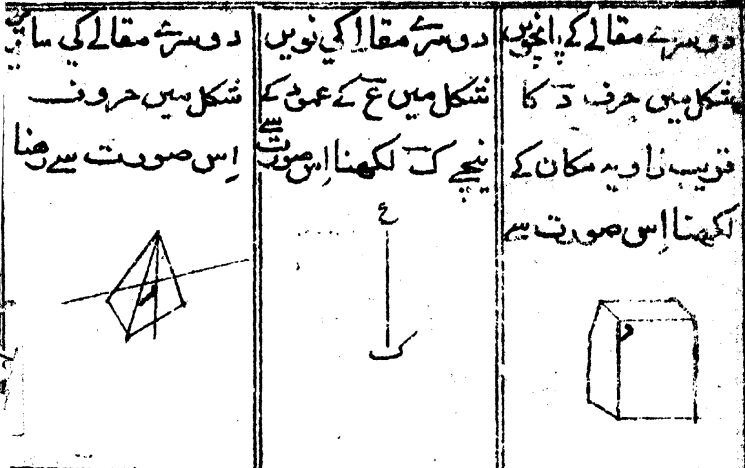 دوسرے مقالے کے پانچویں
شکل میں حرف د کا
قریب زاویہ مکان کے
لکھنا اِس صورت سے
د
دوسرے مقالا کی نویں
شکل میں ع کے عمود کے
نیچے ک لکھنا اِس صورت سے
ع
ک
دوسرے مقالے کی ساتویں
شکل میں حروف
اِس صورت سے رھنا